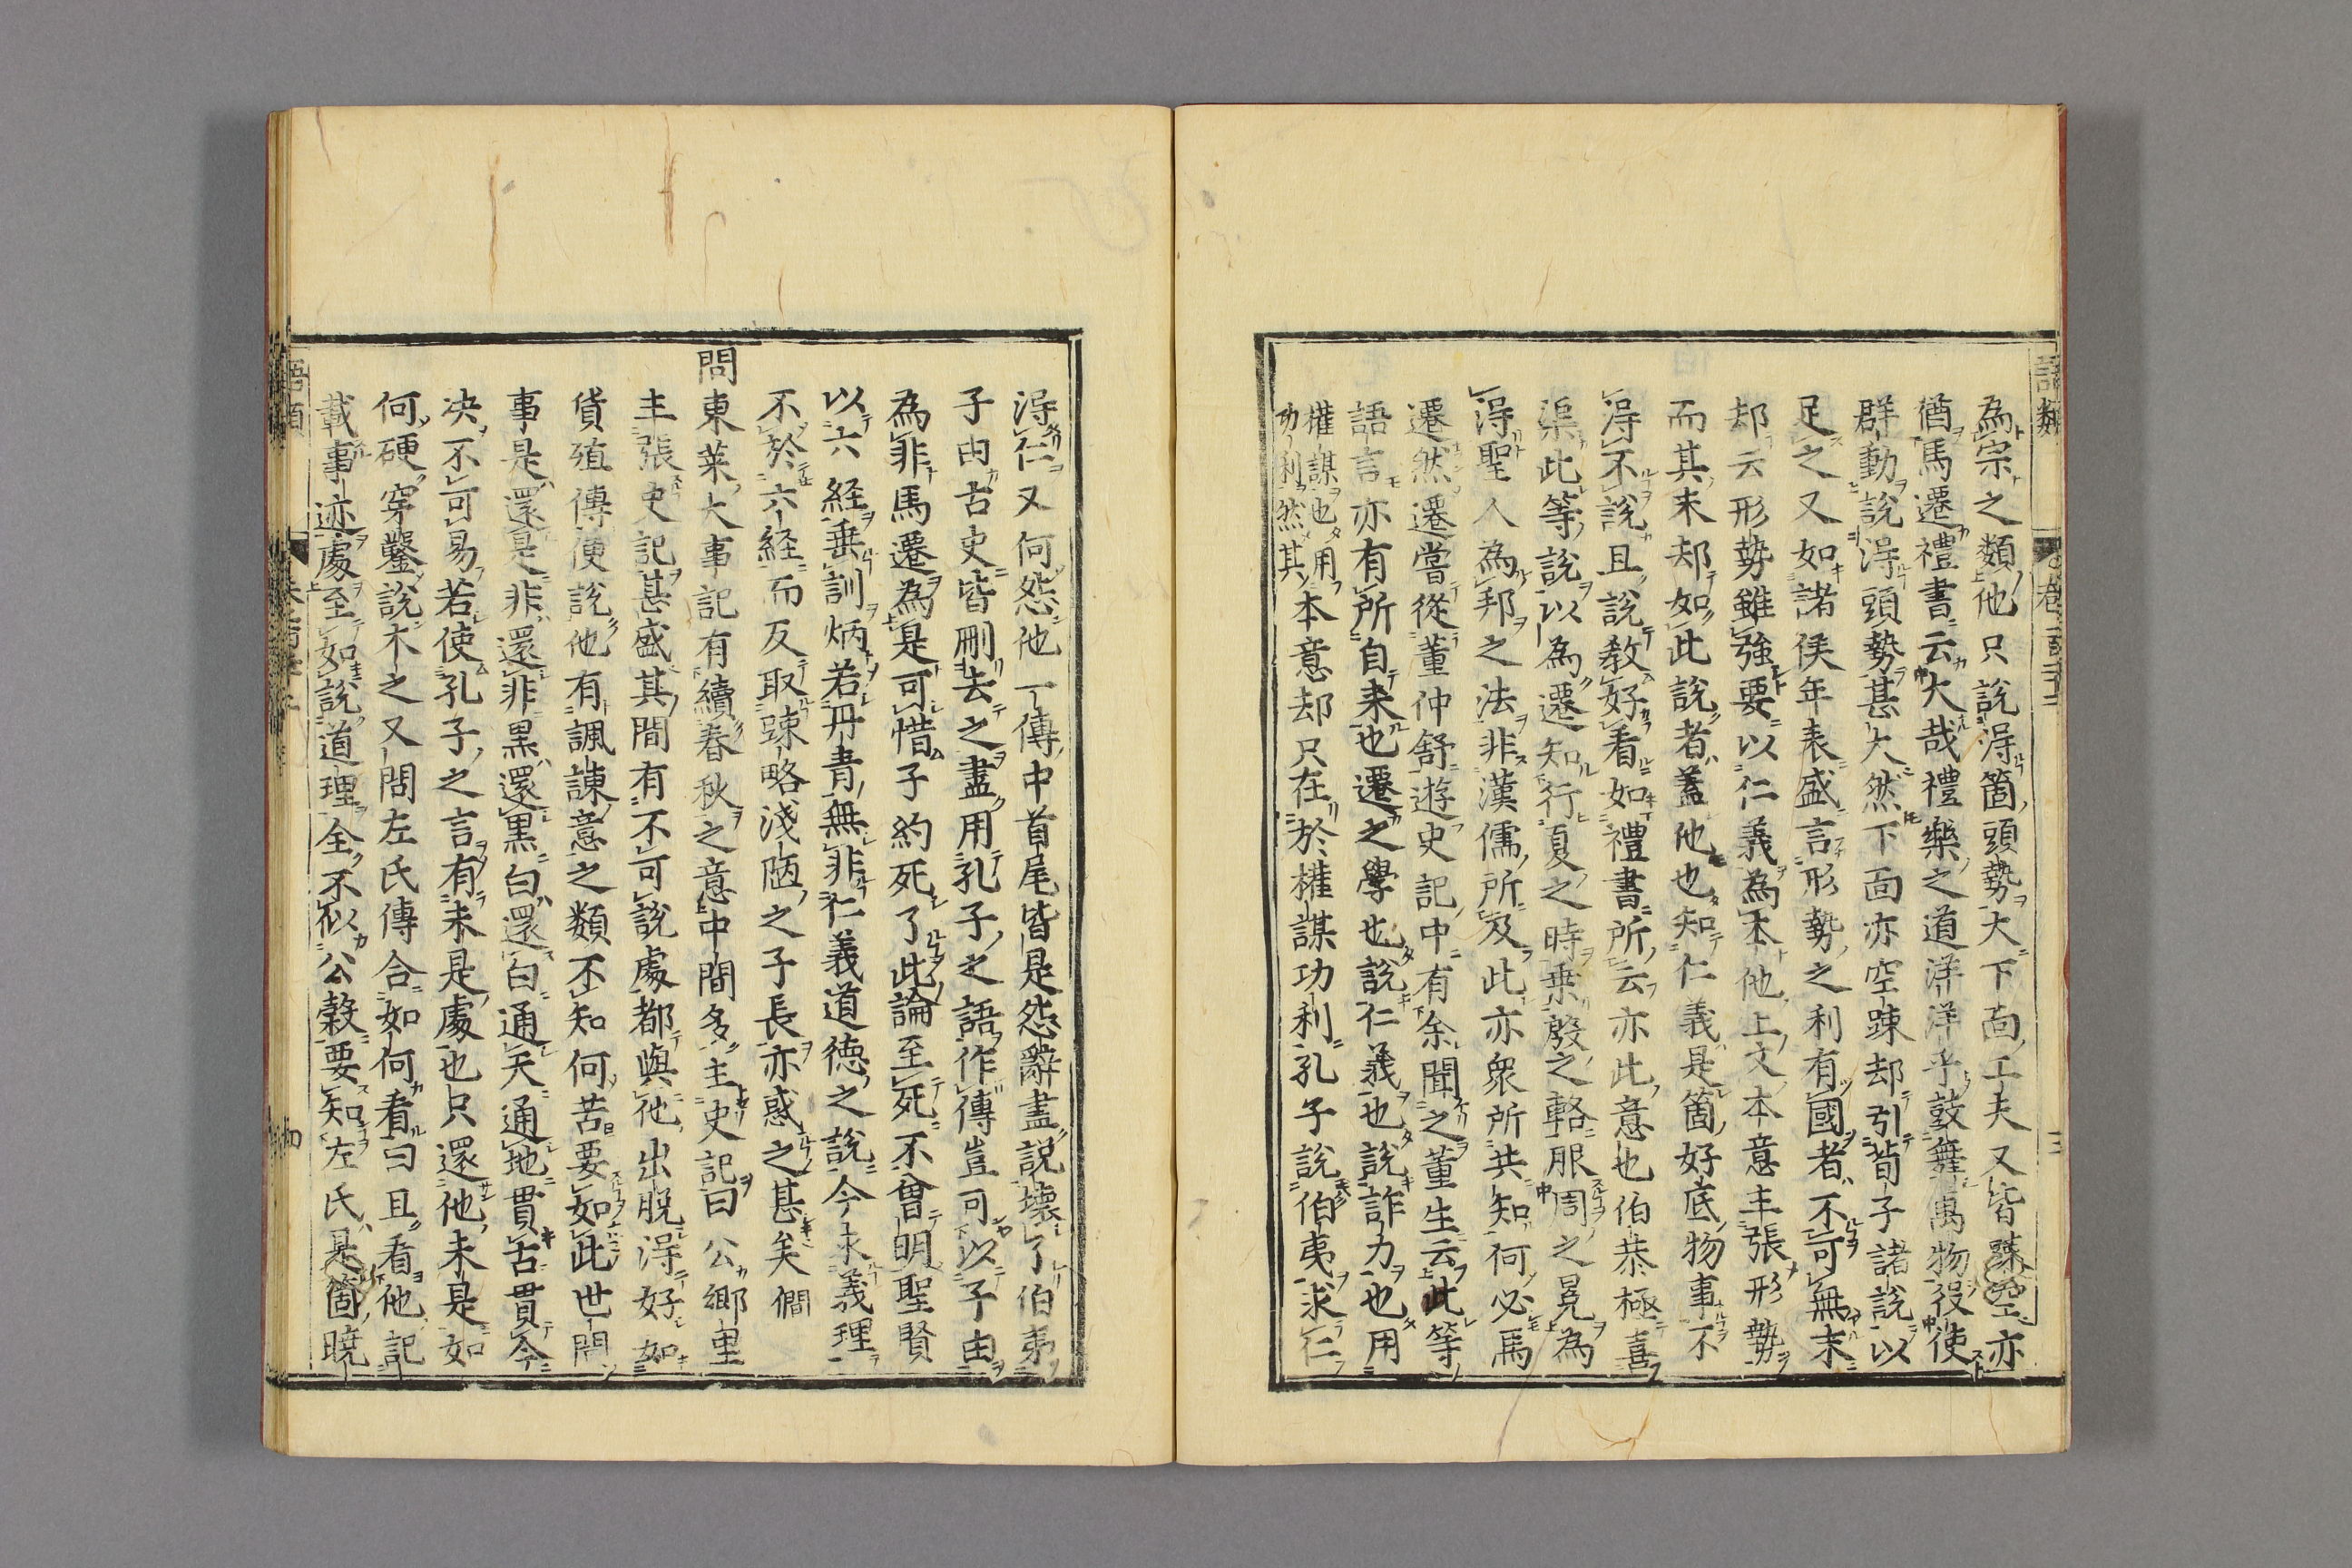 語類
為宗之類他只說淂箇頭勢大下面工夫又皆踈空亦
猶馬遷禮書云大哉禮樂之道洋洋乎鼓舞萬物役使
群動說淂頭勢甚大然下面亦空踈却引荀子諸說以
足之又如諸侯年表盛言形勢之利有國者不可無末
却云形勢雖強要以仁義為本他上文本意主張形勢
而其末却如此說者蓋他也知仁義是箇好底物事不
淂不說且說教好看如禮書所云亦此意也伯恭極喜
渠此等說以為遷知行夏之時乗殷之輅服周之冕為
淂聖人為邦之法非漢儒所及此亦衆所共知何必馬
遷然遷嘗從董仲舒遊史記中有余聞之董生云此等
語言亦有所自来也遷之學也說仁義也說詐力也用
權謀也用功利然其本意却只在於權謀功利孔子說伯夷求仁
淂仁又何怨他一傳中首尾皆是怨辭盡說壊了伯夷
子由古史皆刪去之盡用孔子之語作傳豈可以子由
為非馬遷為是可惜子約死了此論至死不曾明聖賢
以六経垂訓炳若丹青無非仁義道徳之說今求義理
不於六経而反取踈略淺陋之子長亦惑之甚矣僩
問東莱大事記有續春秋之意中間多主史記曰公鄉里
主張史記甚盛其間有不可說處都與他出脱淂好如
貨殖傳便說他有諷諫意之類不知何苦要如此世間
事是還是非還非黒還黒白還白通天通地貫古貫今
决不可易若使孔子之言有未是處也只還他未是如
何硬穿鑿說木之又問左氏傳合如何看曰且看他記
載事迹處至如說道理全不似公穀要知左氏是箇曉
語類